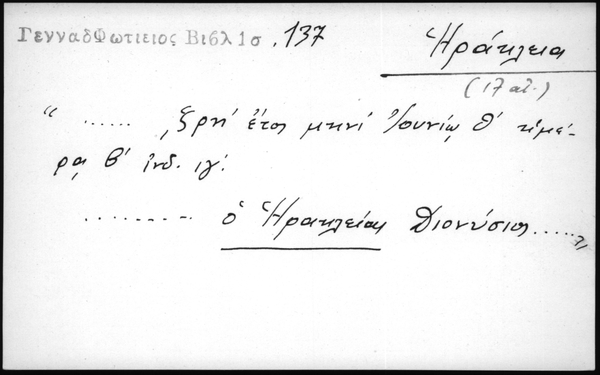 ΓενναδΦωτιειος Βιβλ 1σ. 137
Ἡράκλεια
(17 αἰ.)
“ ...... ͵ζρη' ἔτος μηνὶ Ἰουνίῳ θ' ἡμέ-
ρᾳ β' ἰνδ. ιγ'.
......... ὁ Ἡρακλείας Διονύσιος ......”